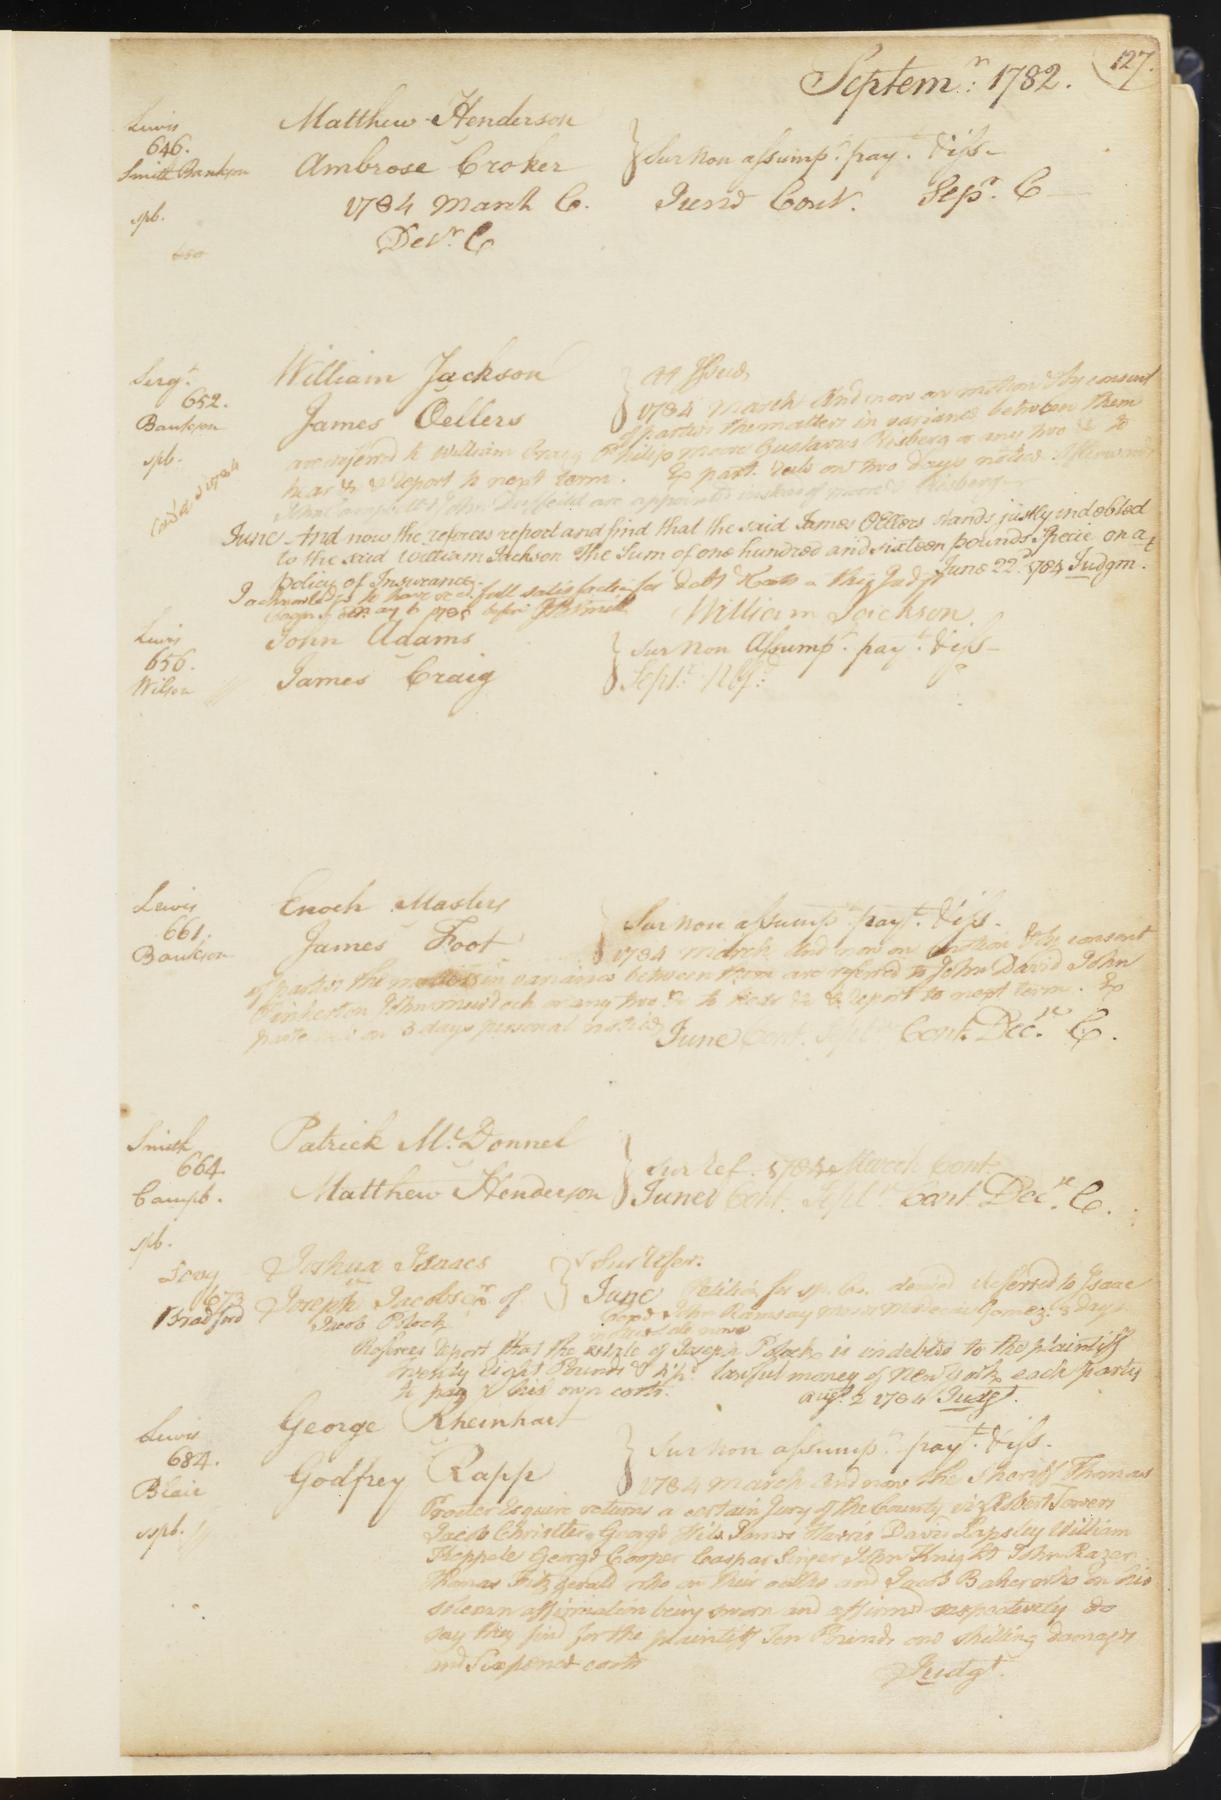 Septemr: 1782.
127.
Lewis
Matthew Henderson
646.
Smith Bankson
Ambrose Croker
Sur non assumpt. payt. & iss—
spl.
1784 March C.
Jund Cont.
Sepr. C
Decr. C
Sergt.
William Jackson
At Issue
652.
Bankson
James Oellers
1784 March And now on motion & by consent
spl.
of parties the matters in variance between them
are referred to William Craig Philip Moore Gustavus Risberg or any two &c to
hear &c & report to next term. Ex parte rule on two days notice Afterwards
John Duffield are appointed instead of Moore & Risberg
June And now the referees report and find that the said James Oellers stands justly indebted
to the said William Jackson The Sum of one hundred and sixteen pounds Specie on a
Policy of Insurance. June 22d. 1784 Judgmt.
I acknowledge to have recd. full satisfaction for debt & Costs on this Judgt
William Jackson.
Lewis
John Adams
656.
Wilson
James Craig
Sur non Assumpt. payt. & iss—
Septr.
Lewis
Enoch Masters
661.
Bankson
James Foot
Sur non assumpt payt. & iss.
1784 March And now on motion & by consent
of parties the matters in variance between them are referred to John David John
Pinkerton John Murdoch or any two &c to hear &c & report to next term. Ex
parte rule on 3 days personal notice June Cont. Septr. Cont. Decr. C.
Smith
Patrick McDonnel
664.
Campb.
Matthew Henderson
Sur ref. 1784 March Cont.
June Cont. Septr. Cont. Decr. C.
spl.
Levy
Joshua Isaacs
Sur Refer.
673
Bradford
Joseph Jacobs Exr. of
Jacob Block
June Petition for sp. Co. denied Referred to Isaac
John Ramsay Gomez. 3 days
notice
Referees report that the estate of Joseph Block is indebted to the plaintiff
twenty Eight Pounds lawful money of New York each party
to pay his own costs. Augt. 2 1784 Judgt.
Lewis
George Rheinhart
684.
Blair
Godfrey Rapp
Sur non assumpt. payt. & iss.
1784 March And now the Sheriff Thomas
spl.
Proctor Esquire returns a certain Jury of the County viz Robert Towers
Jacob Christler George Hils James Harris David Lapsley William
Keppele George Cooper Caspar Singer John Knight John Razer
Thomas Fitzgerald who on their oaths and Jacob Baker who on his
solemn affirmation being sworn and affirmed respectively do
say they find for the plaintiff Ten Pounds one shilling damages
and Sixpence costs Judgt.